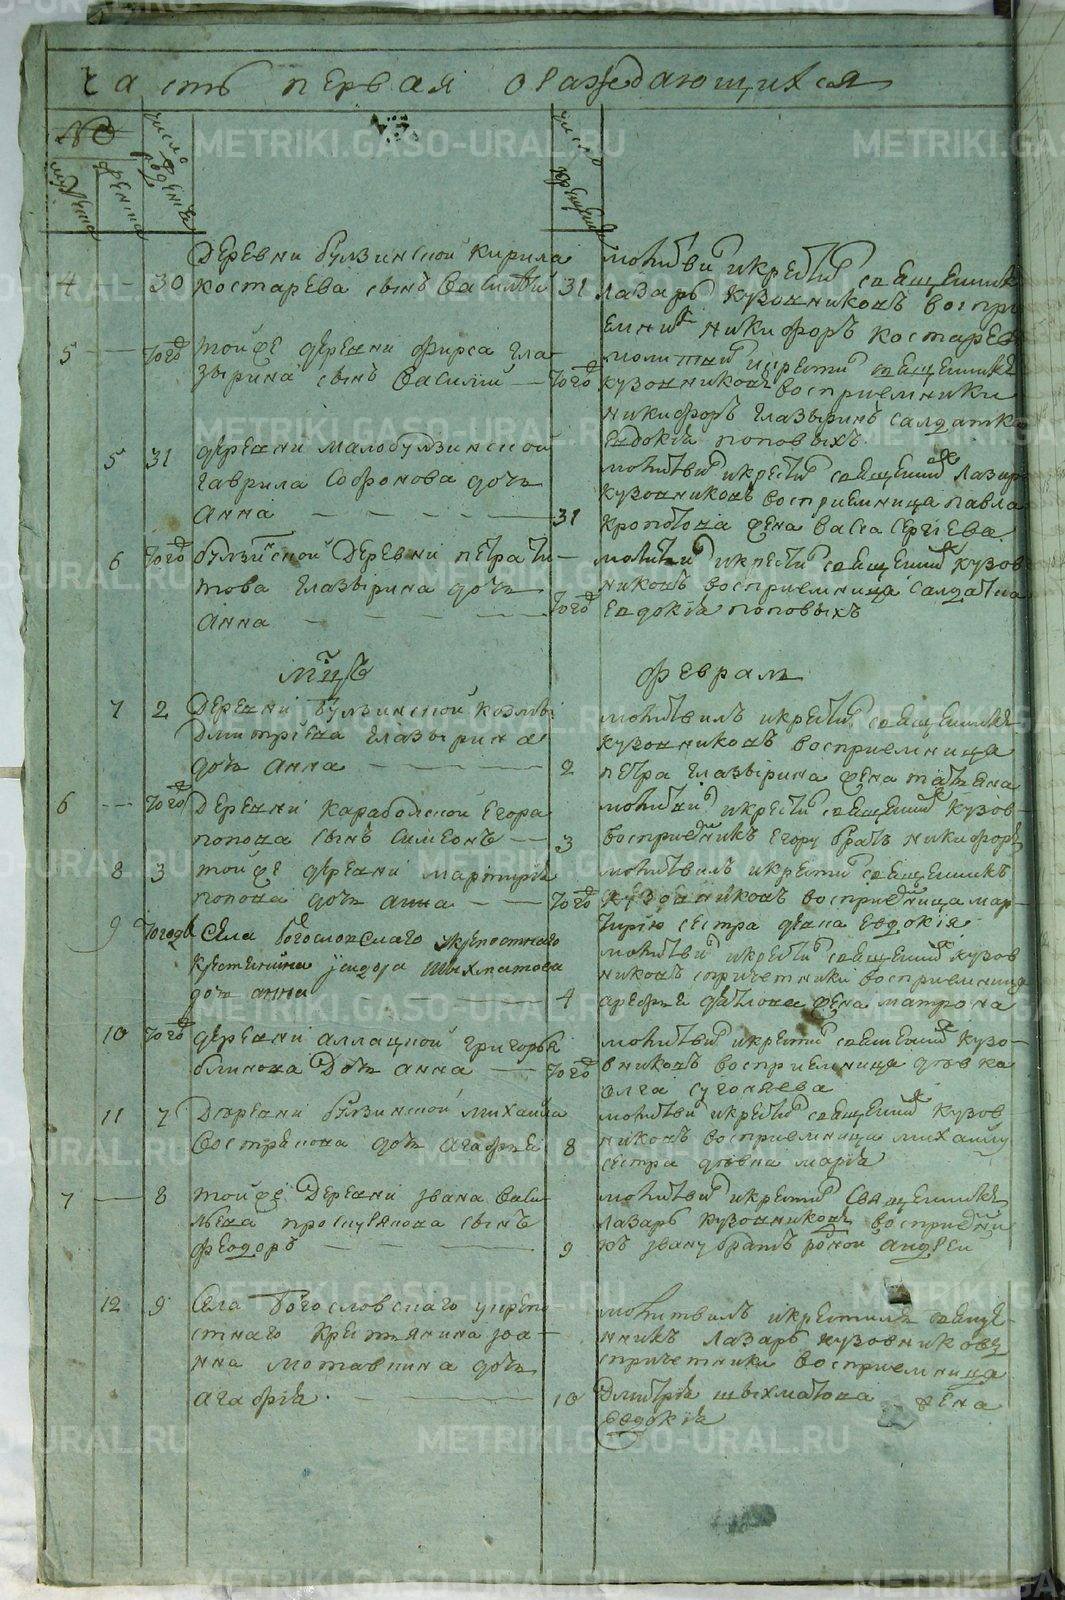 часть первая о раждающихся
№
число рождения
число крещения
мужеска
женска
деревни булзинской кирила
4 — 30 костарева сынъ василий 31
молитви и крестил священникъ
лазарь кузовниковъ воспри
емник никифоръ костарев
5 — того той же деревни фирса гла-
зырина сынъ василий — того
молитвил и крестил священникъ
кузовниковъ восприемники
никифоръ глазыринъ салдатка
евдокия поповыхъ
5 31 деревни малобулзинской
гаврила софонова дочь
анна — — — 31
молитвил и крестил священник лазарь
кузовниковъ восприемница павла
жена васса сергеева
6 того булзинской деревни петра ти-
това глазырина дочь
анна — — — того
молитвил и крестил священник кузов
никовъ восприемница салдатка
евдокия поповыхъ
мцъ февраль
7 2 деревни булзинской козмы
дмитриева глазырина
дочь анна — — 2
молитвилъ и крестил священникъ
кузовниковъ восприемница
петра глазырина жена татьяна
6 — того деревни карабольской егора
попова сынъ симеонъ — 3
молитвил и крестил священник кузов-
восприемникъ егору братъ никифоръ
8 3 той же деревни мартирия
попова дочь анна — того
молитвилъ и крестил священникъ
кузовниковъ восприемница мар-
тирию сестра евдокия
9 того села богословскаго крепостнаго
крестьянина исидора шыхматова
дочь анна 4
молитвил и крестил священник кузов
никовъ спричетники восприемница
жена матрона
10 того деревни аллацкой григорья
блинова дочь анна — того
молитвил и крестил священник кузо-
вниковъ восприемница девка
олга сугоняева
11 7 деревни булзинской михайла
вострякова дочь агафия 8
молитвил и крестил священник кузов
никовъ восприемница михайлу
сестра девка мария
7 — 8 той же деревни ивана васи-
льева сынъ
феодоръ — — 9
молитвил и крестил священникъ
лазарь кузовниковъ восприемни
къ ивану братъ родной андреи
12 9 села богословскаго крепо
стнаго крестьянина иоа-
нна мотавкина дочь
агафия — — 10
молитвилъ и крестилъ свяще-
нникъ лазарь кузовниковъ
спричетники восприемница
дмитрия шыхматова жена
евдокия
METRIKI.GASO-URAL.RU